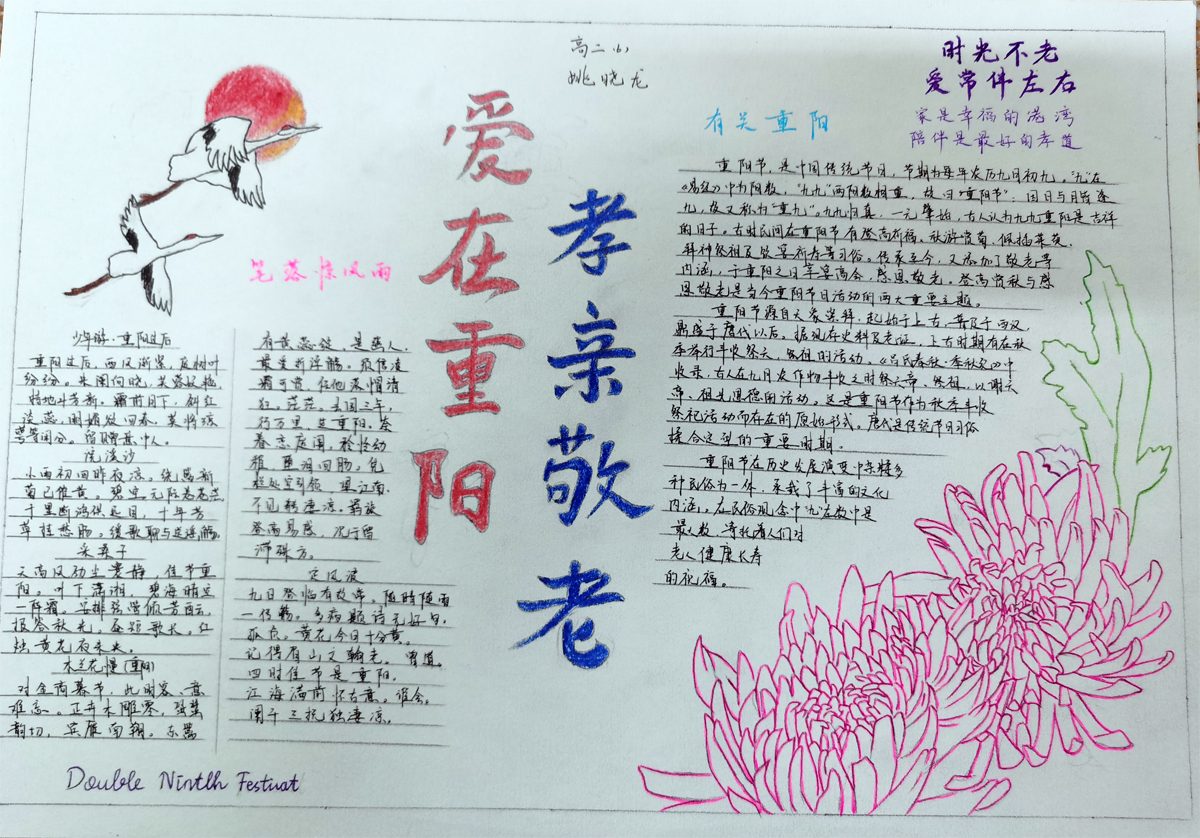 高二小
姚晓龙
时光不老
爱常伴左右
家是幸福的港湾
陪伴是最好的孝道
爱在重阳
孝亲敬老
有关重阳
重阳节，是中国传统节日，节期为每年农历九月初九。"九"在
《易经》中为阳数，"九九"两阳数相重，故曰"重阳节"；因日与月皆逢
九，故又称为"重九"。九九归真，一元肇始，古人认为九九重阳是吉祥
的日子。古时民间在重阳节有登高祈福、秋游赏菊、佩插茱萸、
拜神祭祖及饮宴祈寿等习俗。传承至今，又添加了敬老等
内涵，于重阳之日享宴高会，感恩敬老。登高赏秋与感
恩敬老是当今重阳节日活动的两大重要主题。
重阳节源自天象崇拜，起始于上古，普及于西汉，
鼎盛于唐代以后。据现存史料及考证，上古时期有在秋
季举行丰收祭天、祭祖的活动。《吕氏春秋·季秋纪》中
收录，古人在九月农作物丰收之时祭天帝、祭祖，以谢天
帝、祖先恩德的活动。这是重阳节作为秋季丰收
祭祀活动而存在的原始形式。唐代是传统节日习俗
揉合定型的重要时期。
重阳节在历史发展演变中杂糅多
种民俗为一体，承载了丰富的文化
内涵。在民俗观念中"九"在数中是
最大数，寄托着人们对
老人健康长寿
的祝福。
笔落惊风雨
少年游·重阳过后
重阳过后，西风渐紧，庭树叶
纷纷。朱阑向晓，芙蓉妖艳，
特地斗芳新。霜前月下，斜红
淡蕊，明媚欲回春。莫将琼
萼等闲分。留赠意中人。
浣溪沙
小雨初回昨夜凉。绕篱新
菊已催黄。碧空无际卷苍茫
千里断鸿供远目，十年芳
草挂愁肠。缓歌聊与送瑶觞。
采桑子
天高风劲尘寰静，佳节重
阳。叶下潇湘，碧海晴空
一阵霜。安排弦管倾芳酉，
报答秋光。昼短歌长。红
烛黄花夜未央。
木兰花慢(重阳)
对金商暮节，此时客、意
难忘。正卉木雕零，蛩螿
韵切，宾雁南翔。东篱
有黄蕊绽，是幽人、
最爱折浮觞。须信凌
霜可赏，任他落帽清
狂。茫茫。去国三年，
行万里、过重阳。念
眷恋庭闱，稚幼
牵，重泪回肠。凭
栏处空引领，望江南、
不见转凄凉。羁旅
登高易感，况于留
滞殊方。
定风波
九日登临有故常。随晴随雨
一传觞。多病题诗无好句。
孤负。黄花今日十分黄。
记得眉山文翰老。曾道。
四时佳节是重阳。
江海满前怀古意。谁会。
阑干三抚独凄凉。
Double Nintlh Festuat